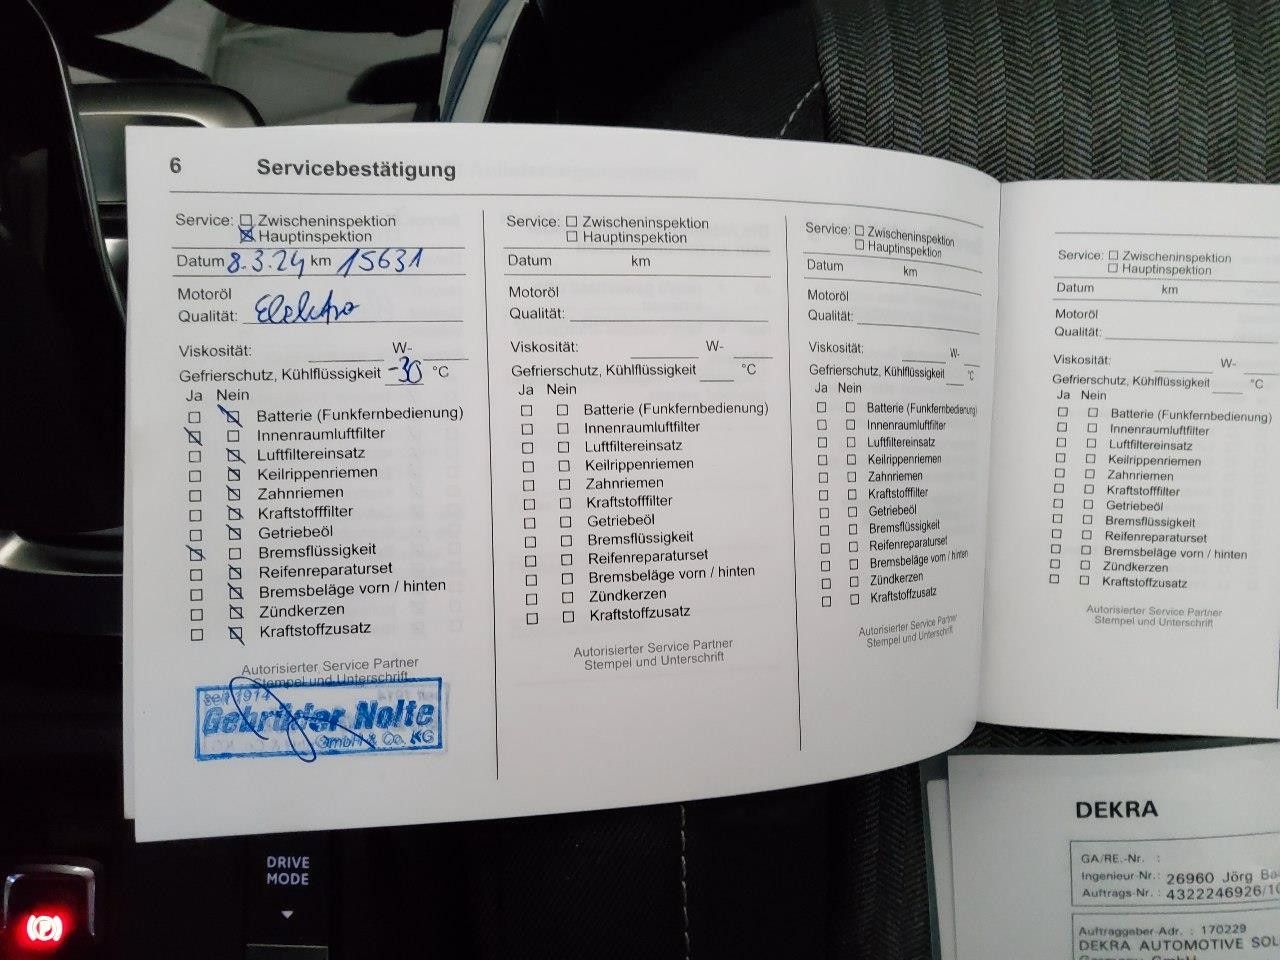 6 Servicebestätigung
Service: ☐ Zwischeninspektion
☒ Hauptinspektion
Datum 8.3.24 km 15631
Motoröl
Qualität: Elektro
Viskosität: ____ W- ____
Gefrierschutz, Kühlflüssigkeit -30 °C
Ja Nein
☐ ☒ Batterie (Funkfernbedienung)
☒ ☐ Innenraumluftfilter
☐ ☒ Luftfiltereinsatz
☐ ☒ Keilrippenriemen
☐ ☒ Zahnriemen
☐ ☒ Kraftstofffilter
☐ ☒ Getriebeöl
☒ ☐ Bremsflüssigkeit
☐ ☒ Reifenreparaturset
☐ ☒ Bremsbeläge vorn / hinten
☐ ☒ Zündkerzen
☐ ☒ Kraftstoffzusatz
Autorisierter Service Partner
Stempel und Unterschrift
seit 1914
Gebrüder Nolte
GmbH & Co. KG
Service: ☐ Zwischeninspektion
☐ Hauptinspektion
Datum km
Motoröl
Qualität:
Viskosität: ____ W- ____
Gefrierschutz, Kühlflüssigkeit ____ °C
Ja Nein
☐ ☐ Batterie (Funkfernbedienung)
☐ ☐ Innenraumluftfilter
☐ ☐ Luftfiltereinsatz
☐ ☐ Keilrippenriemen
☐ ☐ Zahnriemen
☐ ☐ Kraftstofffilter
☐ ☐ Getriebeöl
☐ ☐ Bremsflüssigkeit
☐ ☐ Reifenreparaturset
☐ ☐ Bremsbeläge vorn / hinten
☐ ☐ Zündkerzen
☐ ☐ Kraftstoffzusatz
Autorisierter Service Partner
Stempel und Unterschrift
Service: ☐ Zwischeninspektion
☐ Hauptinspektion
Datum km
Motoröl
Qualität:
Viskosität: ____ W- ____
Gefrierschutz, Kühlflüssigkeit ____ °C
Ja Nein
☐ ☐ Batterie (Funkfernbedienung)
☐ ☐ Innenraumluftfilter
☐ ☐ Luftfiltereinsatz
☐ ☐ Keilrippenriemen
☐ ☐ Zahnriemen
☐ ☐ Kraftstofffilter
☐ ☐ Getriebeöl
☐ ☐ Bremsflüssigkeit
☐ ☐ Reifenreparaturset
☐ ☐ Bremsbeläge vorn / hinten
☐ ☐ Zündkerzen
☐ ☐ Kraftstoffzusatz
Autorisierter Service Partner
Stempel und Unterschrift
Service: ☐ Zwischeninspektion
☐ Hauptinspektion
Datum km
Motoröl
Qualität:
Viskosität: ____ W- ____
Gefrierschutz, Kühlflüssigkeit ____ °C
Ja Nein
☐ ☐ Batterie (Funkfernbedienung)
☐ ☐ Innenraumluftfilter
☐ ☐ Luftfiltereinsatz
☐ ☐ Keilrippenriemen
☐ ☐ Zahnriemen
☐ ☐ Kraftstofffilter
☐ ☐ Getriebeöl
☐ ☐ Bremsflüssigkeit
☐ ☐ Reifenreparaturset
☐ ☐ Bremsbeläge vorn / hinten
☐ ☐ Zündkerzen
☐ ☐ Kraftstoffzusatz
Autorisierter Service Partner
Stempel und Unterschrift
DRIVE
MODE
DEKRA
GA/RE.-Nr. :
Ingenieur-Nr.: 26960 Jörg
Auftrags-Nr.: 4322246926/10
Auftraggeber-Adr. : 170229
DEKRA AUTOMOTIVE SOL
Germany GmbH